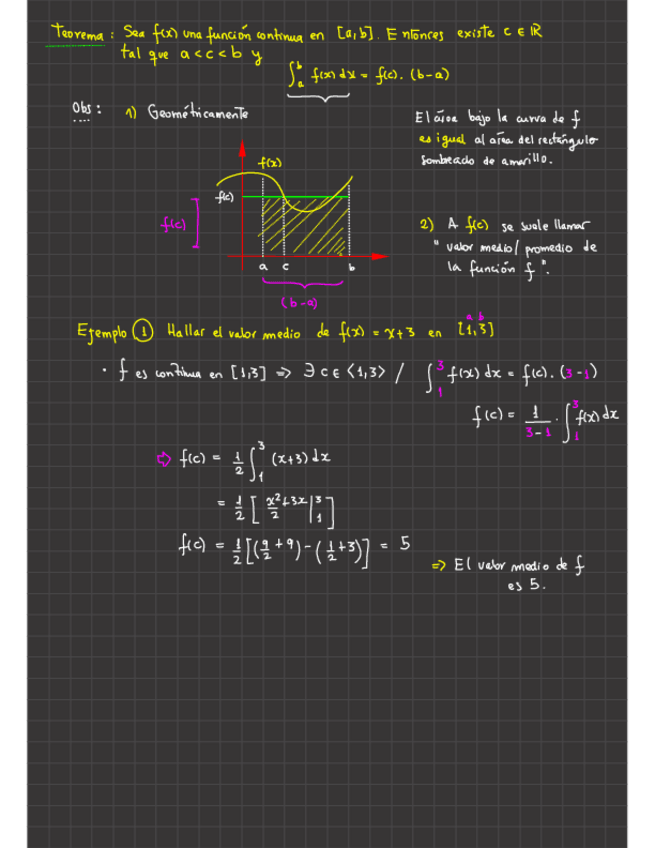 Teorema : Sea f(x) una función continua en [a,b]. Entonces existe c ∈ ℝ
tal que a < c < b y
∫_a^b f(x) dx = f(c). (b-a)
Obs : 1) Geométricamente
El área bajo la curva de f
es igual al área del rectángulo
sombreado de amarillo.
f(x)
f(c)
f(c)
a c b
(b-a)
2) A f(c) se suele llamar
"valor medio/promedio de
la función f".
a b
Ejemplo ① Hallar el valor medio de f(x) = x+3 en [1,3]
· f es continua en [1,3] => ∃ c ∈ <1,3> / ∫_1^3 f(x) dx = f(c). (3-1)
f(c) = 1/(3-1) · ∫_1^3 f(x) dx
⇨ f(c) = 1/2 ∫_1^3 (x+3) dx
= 1/2 [ x²/2 + 3x |_1^3 ]
f(c) = 1/2 [(9/2 + 9) - (1/2 + 3)] = 5
=> El valor medio de f
es 5.